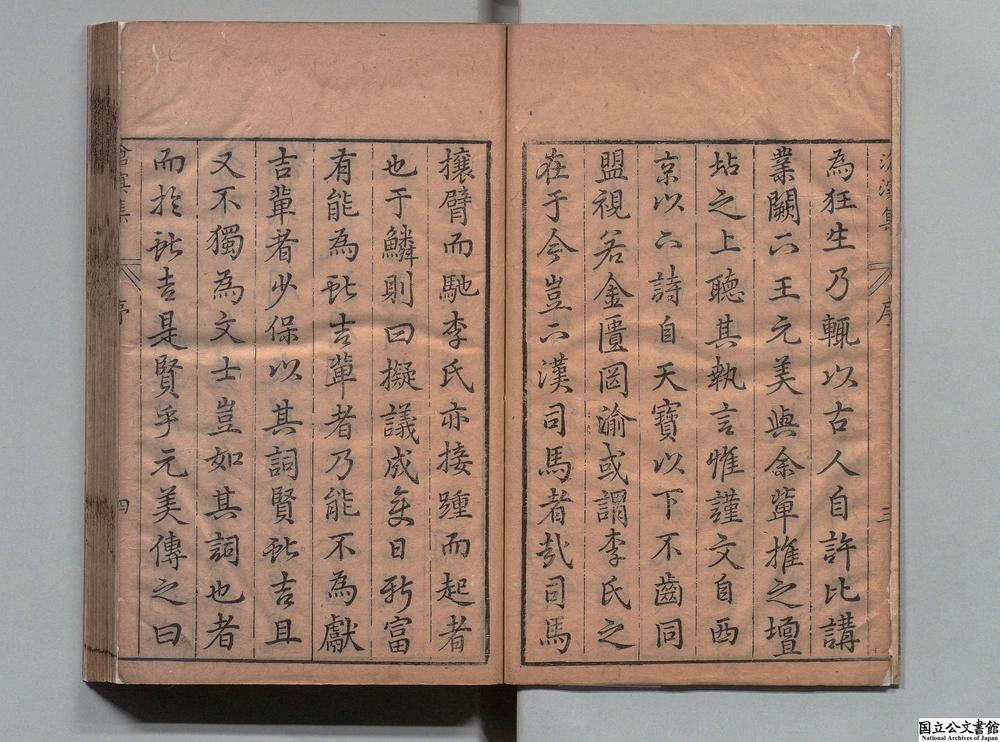 為狂生乃輒以古人自許比講
業闕下王元美與余輩推之壇
坫之上聽其執言惟謹文自西
京以下詩自天寶以下不齒同
盟視若金匱罔渝或謂李氏之
在于今豈下漢司馬者哉司馬
滄溟集
序
三
攘臂而馳李氏亦接踵而起者
也于鱗則曰擬議成變日新富
有能為獻吉輩者乃能不為獻
吉輩者少保以其詞賢獻吉且
又不獨為文士豈如其詞也者
而於獻吉是賢乎元美傳之曰
滄溟集
序
四
国立公文書館
National Archives of Japan